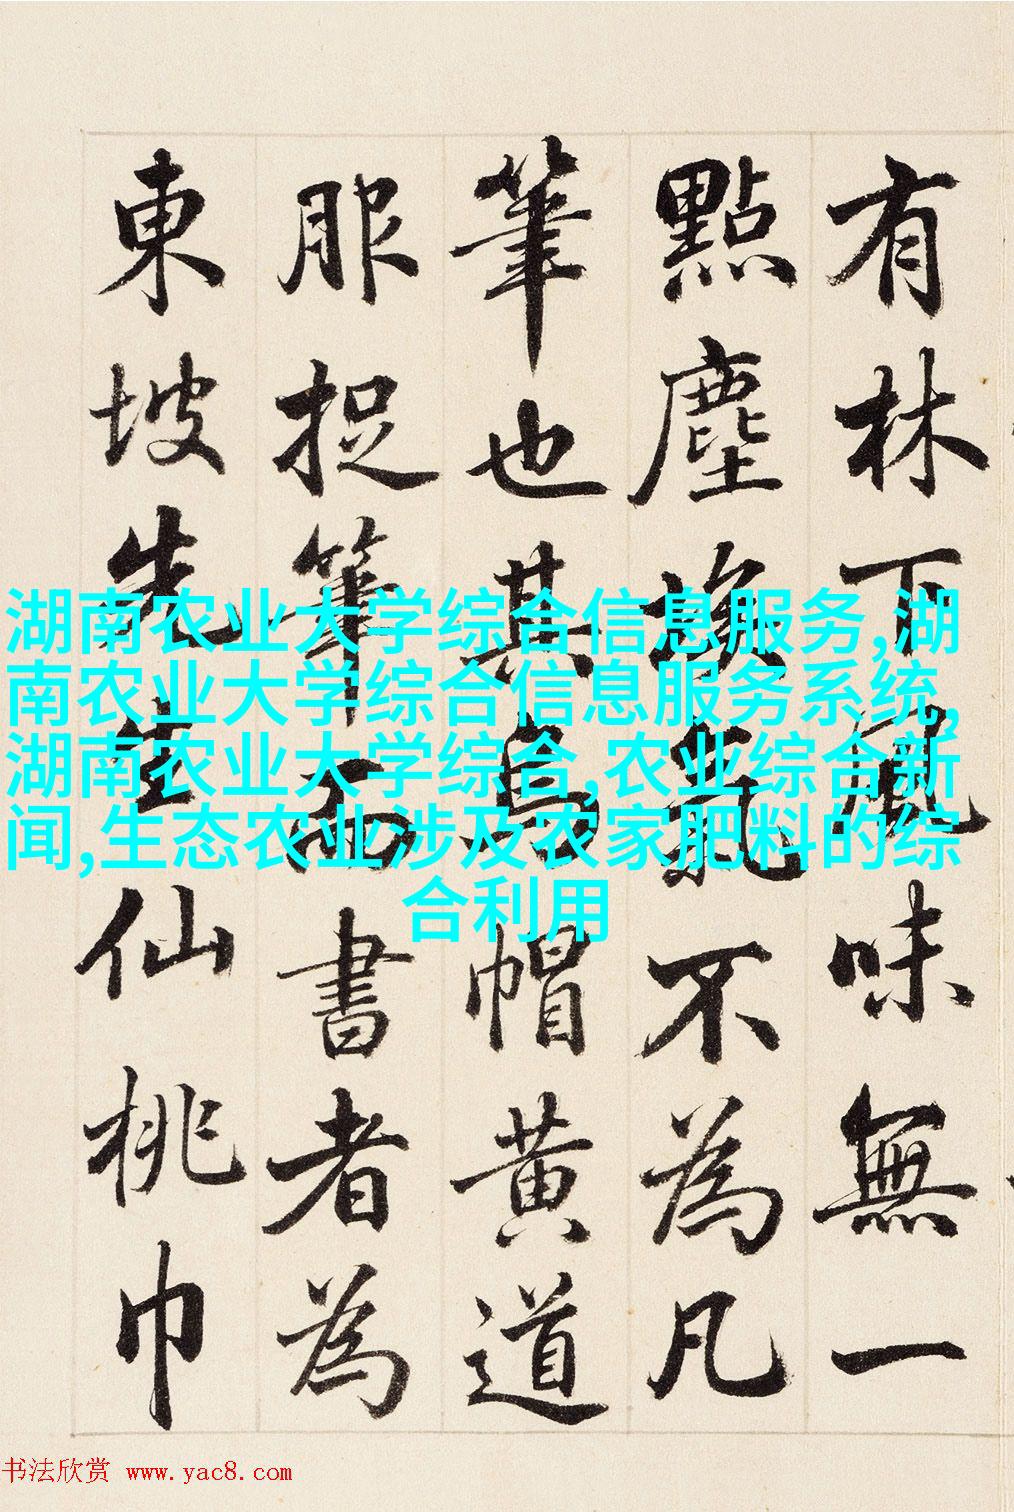 有林下風味無一
點塵埃氣不為凡
筆也其烏帽黃道
服捉筆而書者為
東坡先生仙桃巾
湖南农业大学综合信息服务,湖
南农业大学综合信息服务系统,
湖南农业大学综合,农业综合新
闻,生态农业涉及农家肥料的综
合利用
书法欣赏 www.yac8.com